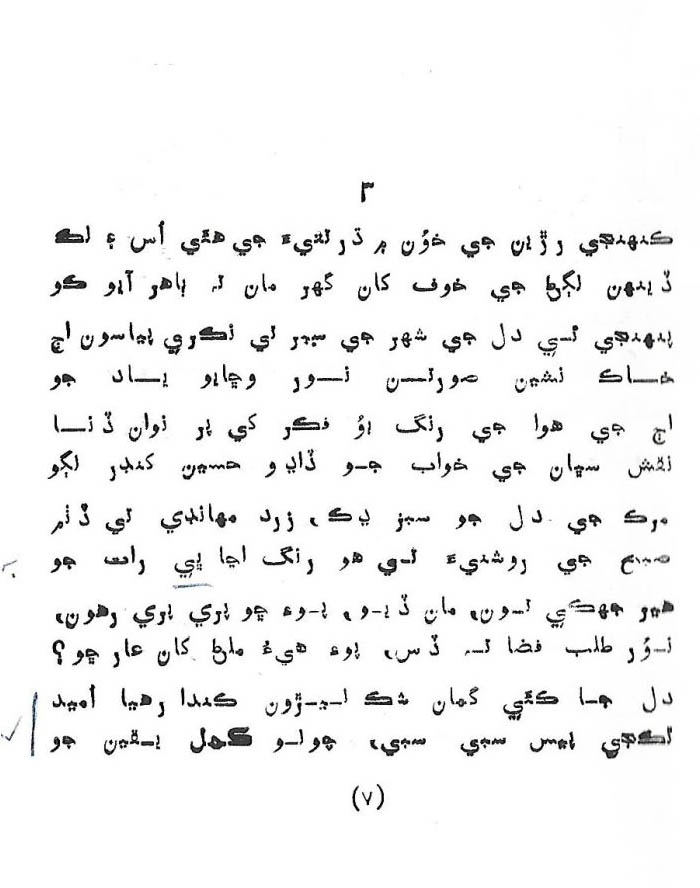 ٣
ڪنهنجي رڙين جي خوُن ۾ ڌرتيءَ جي هٿي اُس ۽ لڪ
ڏينهن لڳڻ جي خوف کان گهر مان نہ ٻاهر آيو ڪو
پنهنجي ئي دل جي شهر جي سير تي نڪري پياسون اڄ
خاڪ نشين صورتن نور وڇايو ياد جو
اڄ جي هوا جي رنگ بوُ فڪر کي پر نوان ڏنا
نقش سڀان جي خواب جو ڏاڍو حسين کنڊر لڳو
مرڪ جي دل جو سبز ڍڪ، زرد مهاندي تي ڏٺم
صبح جي روشنيءَ ئي هو رنگ اڇا ڀي رات جو
هير جهڪي تون، مان ڏيو، پوءِ ڇو پري پري رهون،
نوُر طلب فضا تہ ڏس، پوءِ هيءُ ملڻ کان عار ڇو؟
دل جا ڪٿي گمان شڪ ليڙون ڪندا رهيا اُميد
لڪجي پيس سبي سبي، چولو گهل يقين جو
(٧)